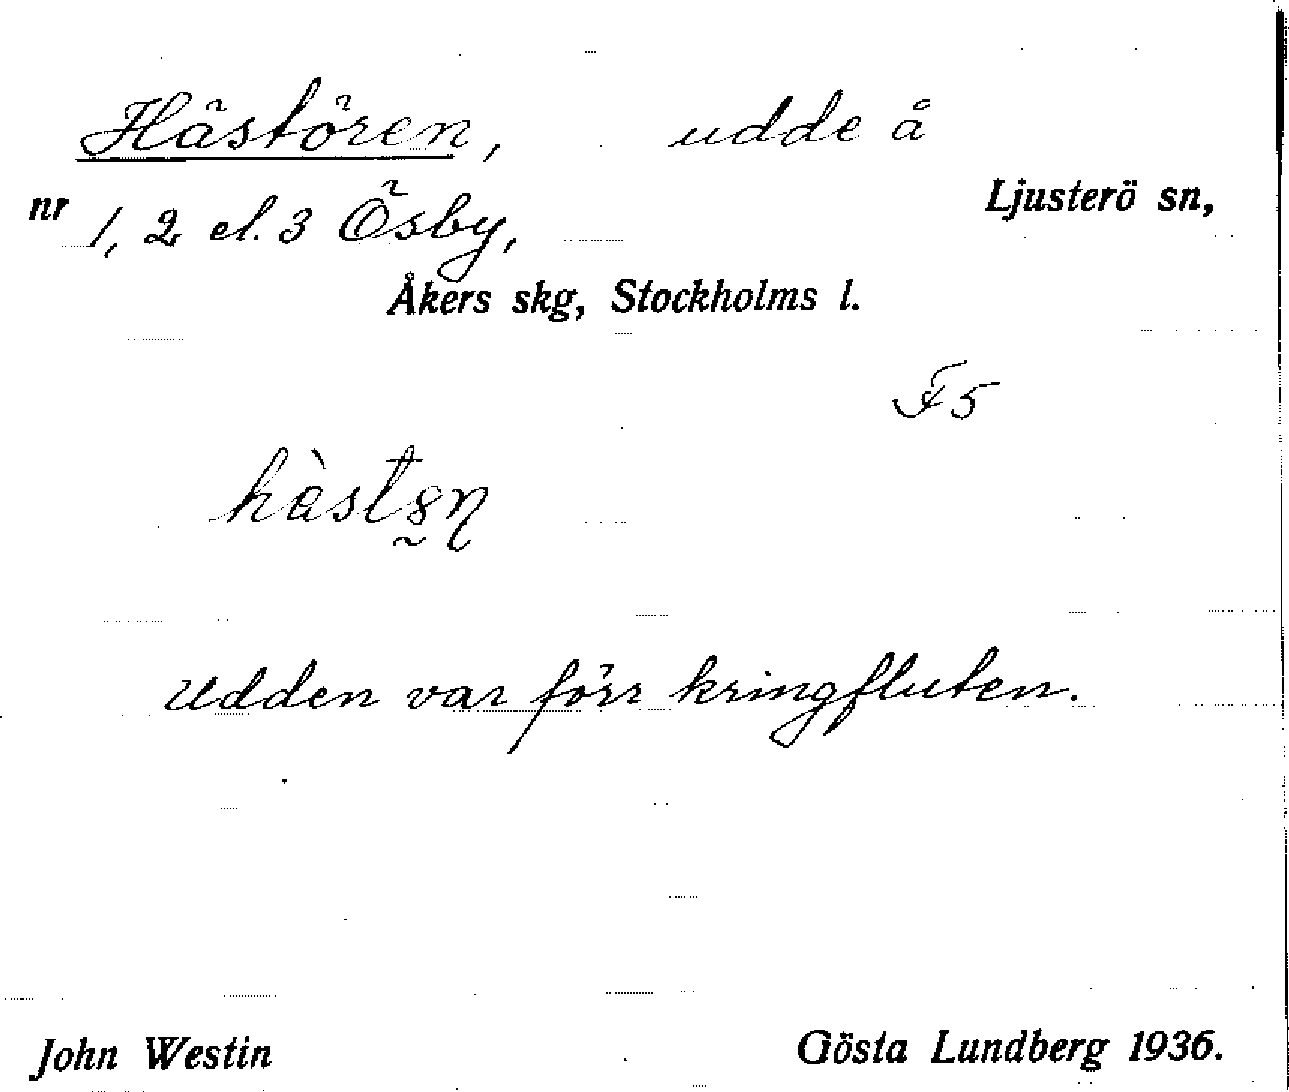 Hästören, udde å
nr 1, 2 el. 3 Ösby, Ljusterö sn,
Åkers skg, Stockholms l.
F5
Udden var förr kringfluten.
John Westin Gösta Lundberg 1936.